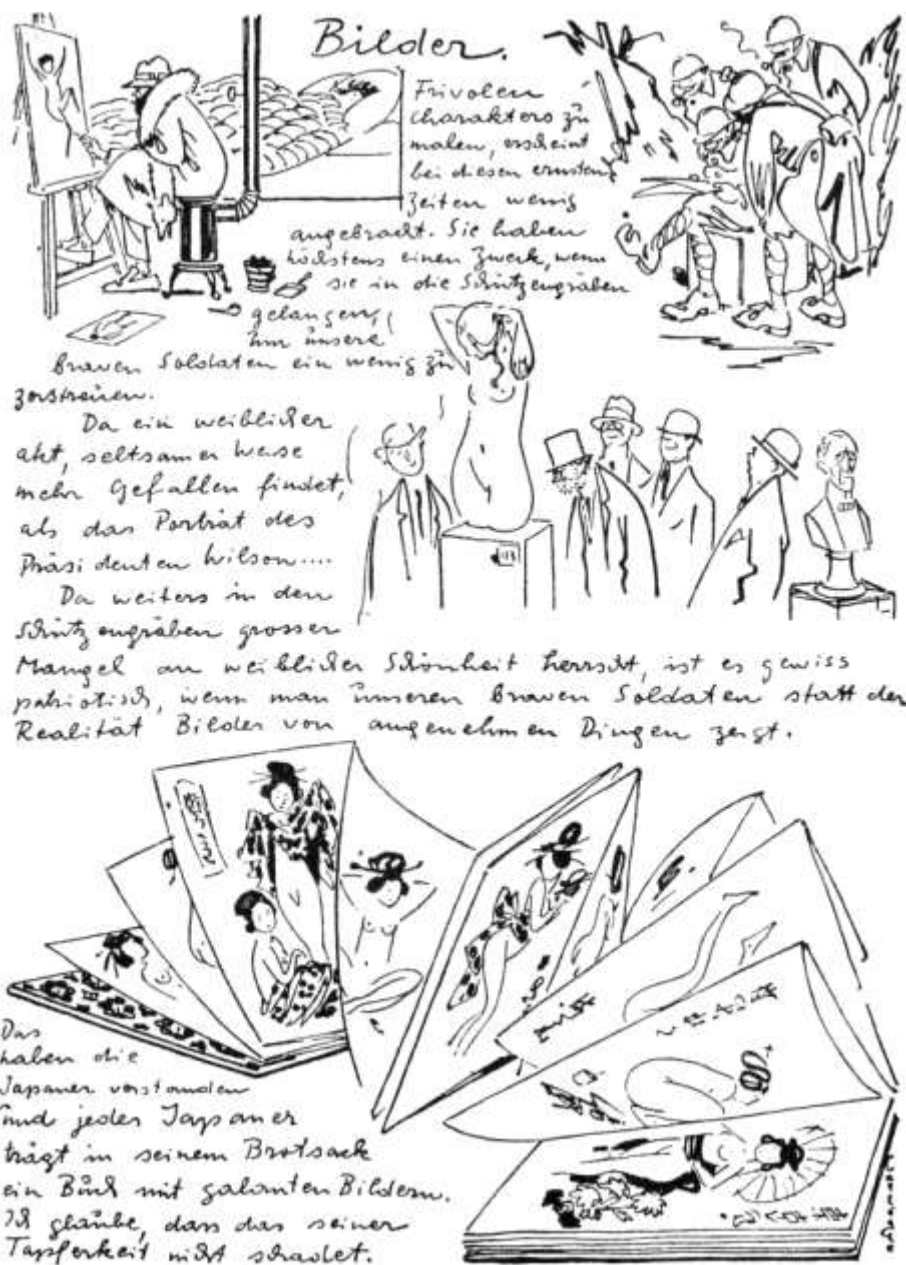 Bilder.
Frivolen
Charakters zu
malen, erscheint
bei diesen ernsten
Zeiten wenig
angebracht. Sie haben
höchstens einen Zweck, wenn
sie in die Schützengräben
gelangen,
um unsere
braven Soldaten ein wenig zu
zerstreuen.
Da ein weiblicher
akt, seltsamer weise
mehr Gefallen findet,
als das Porträt des
Präsidenten Wilson....
Da weiters in den
Schützengräben grosser
Mangel an weiblicher Schönheit herrscht, ist es gewiss
patriotisch, wenn man unseren braven Soldaten statt der
Realität Bilder von angenehmen Dingen zeigt.
Das
haben die
Japaner verstanden
und jeder Japaner
trägt in seinem Brotsack
ein Buch mit galanten Bildern.
Ich glaube, dass das seiner
Tapferkeit nicht schadet.